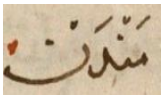 مَنْدَنْ